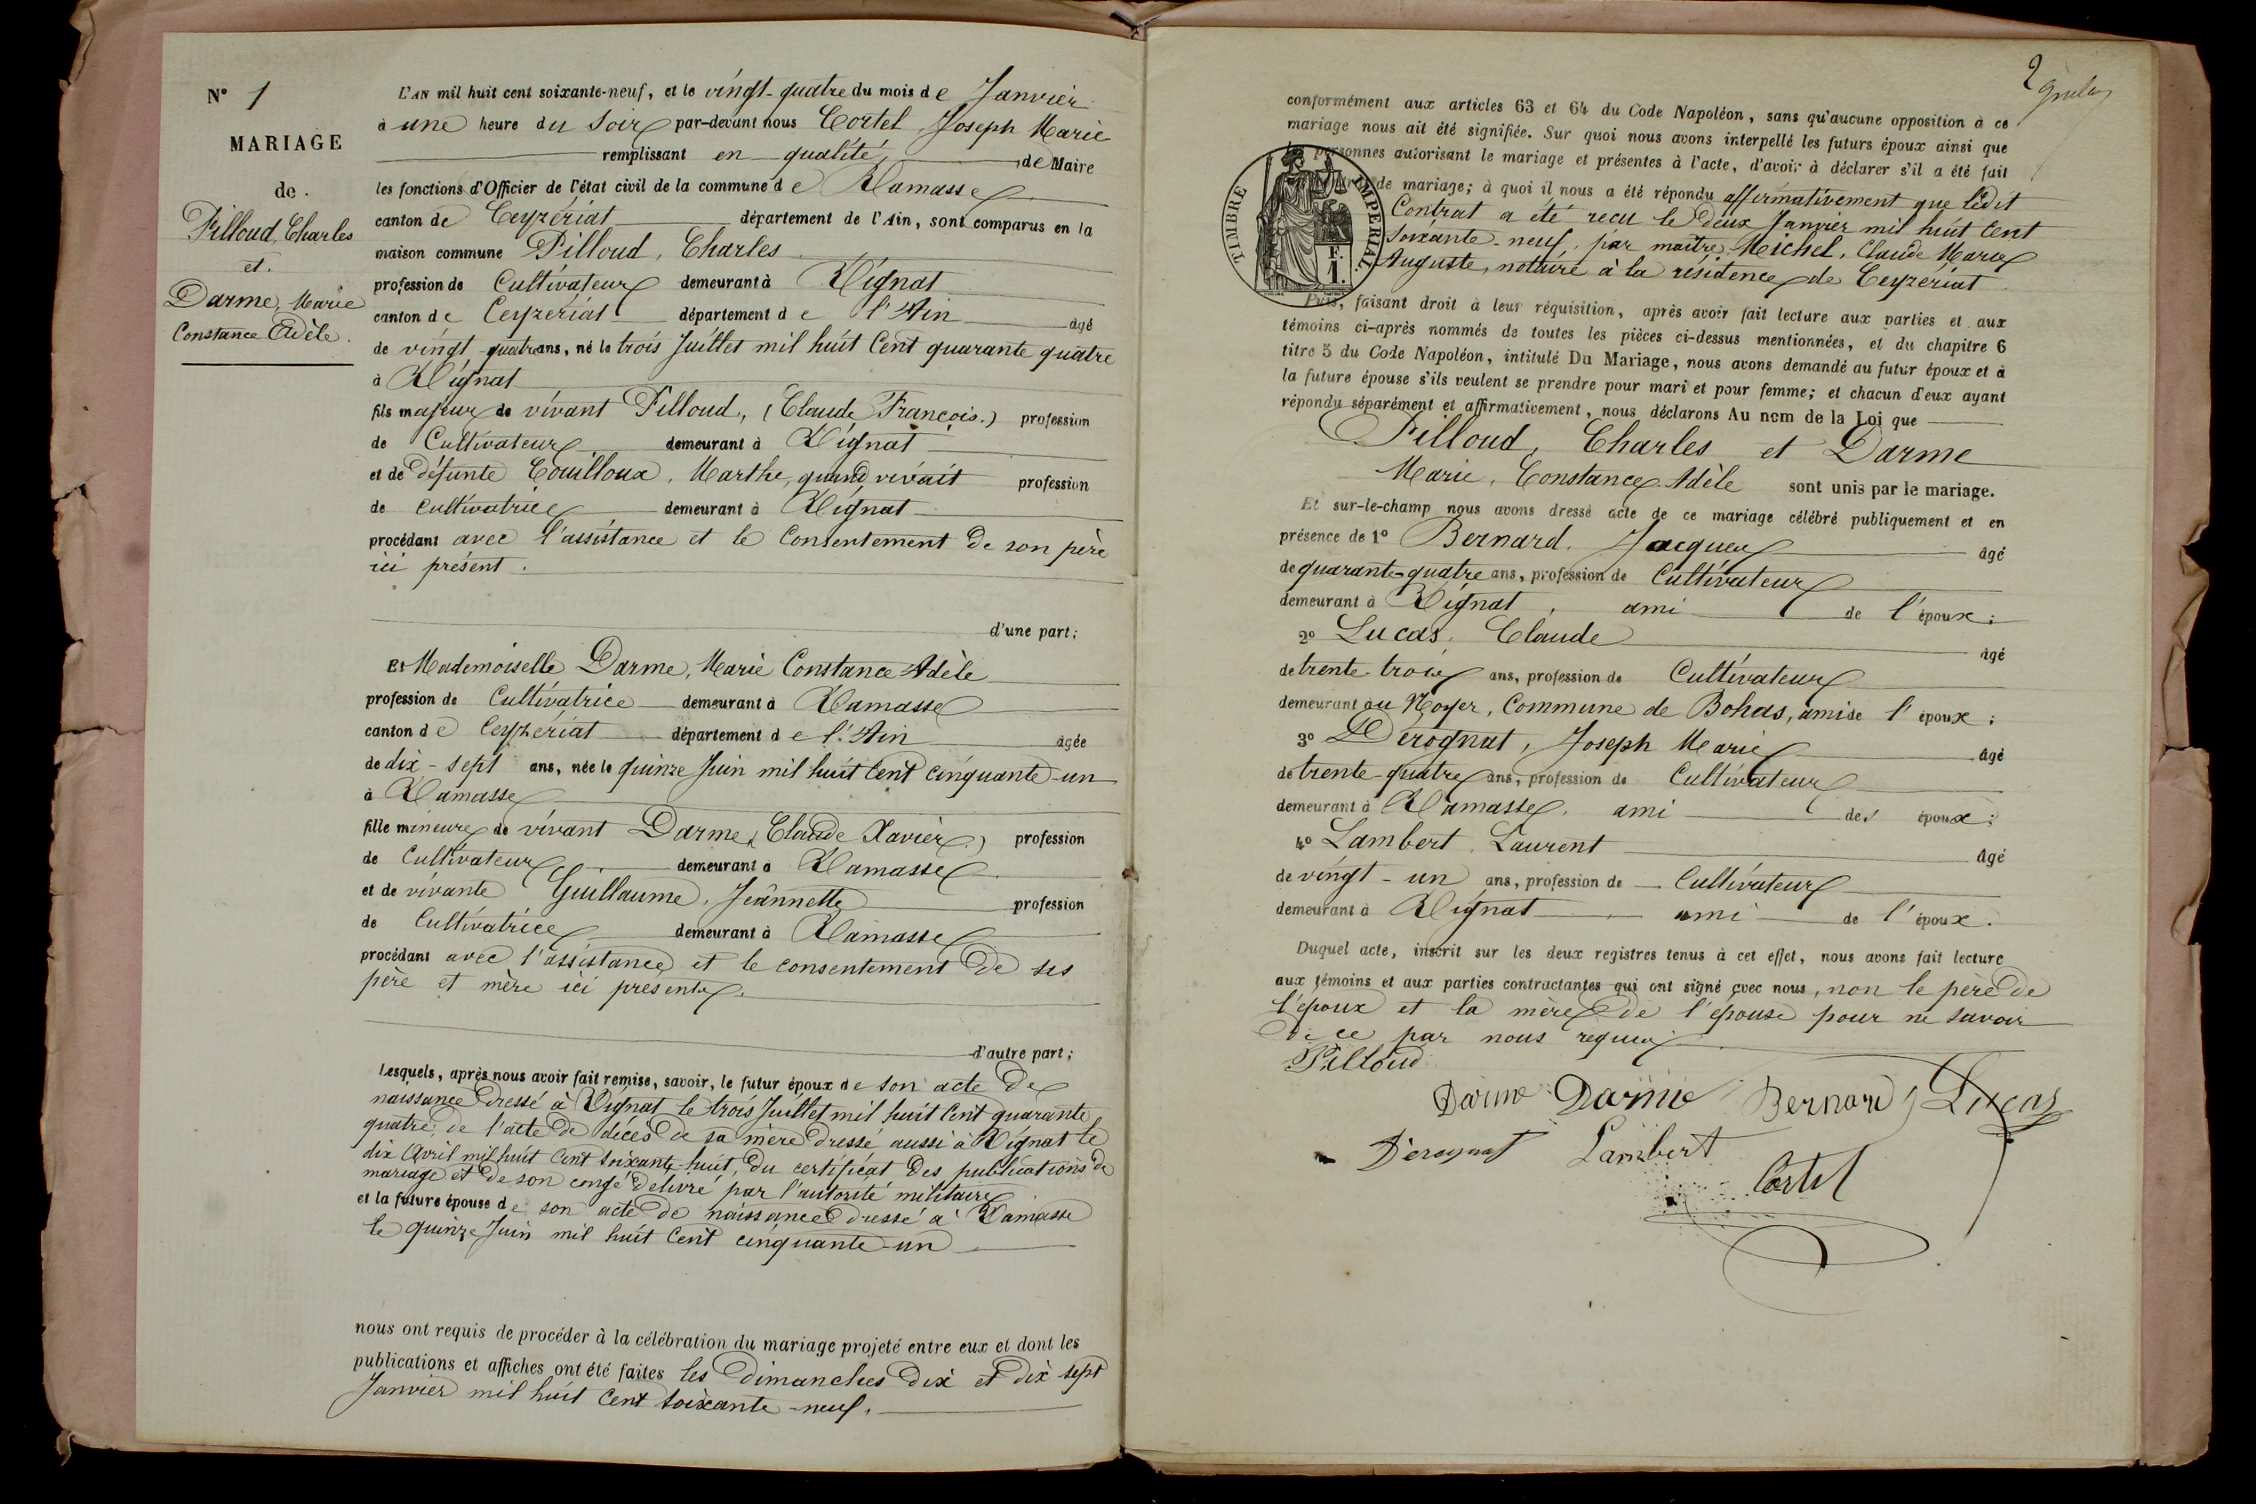 N° 1
MARIAGE
de
Pilloud, Charles
et
Darme, Marie
Constance Adèle.
L'AN mil huit cent soixante-neuf, et le vingt-quatre du mois de Janvier
à une heure du soir par-devant nous Cortel, Joseph Marie
remplissant en qualité de Maire
les fonctions d'Officier de l'état civil de la commune de Ramasse
canton de Ceyzériat département de l'Ain, sont comparus en la
maison commune Pilloud, Charles
profession de Cultivateur demeurant à Rignat
canton de Ceyzériat département de l'Ain âgé
de vingt-quatre ans, né le trois Juillet mil huit Cent quarante quatre
à Rignat
fils majeur de vivant Pilloud, (Claude François.) profession
de Cultivateur demeurant à Rignat
et de défunte Couilloux, Marthe, quand vivait profession
de cultivatrice demeurant à Rignat
procédant avec l'assistance et le Consentement de son père
ici présent.
d'une part;
Et Mademoiselle Darme, Marie Constance Adèle
profession de Cultivatrice demeurant à Ramasse
canton de Ceyzériat département de l'Ain âgée
de dix-sept ans, née le quinze Juin mil huit Cent cinquante-un
à Ramasse
fille mineure de vivant Darme, (Claude Xavier) profession
de Cultivateur demeurant à Ramasse
et de vivante Guillaume, Jeannette profession
de Cultivatrice demeurant à Ramasse
procédant avec l'assistance et le consentement de ses
père et mère ici présents.
d'autre part;
Lesquels, après nous avoir fait remise, savoir, le futur époux de son acte de
naissance dressé à Rignat le trois Juillet mil huit Cent quarante
quatre, de l'acte de décès de sa mère dressé aussi à Rignat le
dix Avril mil huit Cent soixante-huit, du certificat des publications de
mariage et de son congé délivré par l'autorité militaire
et la future épouse de son acte de naissance dressé à Ramasse
le quinze Juin mil huit Cent cinquante-un
nous ont requis de procéder à la célébration du mariage projeté entre eux et dont les
publications et affiches ont été faites les dimanches dix et dix sept
Janvier mil huit Cent soixante-neuf.
2
conformément aux articles 63 et 64 du Code Napoléon, sans qu'aucune opposition à ce
mariage nous ait été signifiée. Sur quoi nous avons interpellé les futurs époux ainsi que
personnes autorisant le mariage et présentes à l'acte, d'avoir à déclarer s'il a été fait
de mariage; à quoi il nous a été répondu affirmativement que ledit
Contrat a été reçu le deux Janvier mil huit Cent
soixante-neuf, par maître Michel, Claude Marie
Auguste, notaire à la résidence de Ceyzériat
TIMBRE IMPERIAL.
F.
1.
Puis, faisant droit à leur réquisition, après avoir fait lecture aux parties et aux
témoins ci-après nommés de toutes les pièces ci-dessus mentionnées, et du chapitre 6
titre 5 du Code Napoléon, intitulé Du Mariage, nous avons demandé au futur époux et à
la future épouse s'ils veulent se prendre pour mari et pour femme; et chacun d'eux ayant
répondu séparément et affirmativement, nous déclarons Au nom de la Loi que
Pilloud, Charles et Darme
Marie, Constance Adèle sont unis par le mariage.
Et sur-le-champ nous avons dressé acte de ce mariage célébré publiquement et en
présence de 1° Bernard, Jacques âgé
de quarante-quatre ans, profession de Cultivateur
demeurant à Rignat, ami de l'époux;
2° Lucas, Claude âgé
de trente-trois ans, profession de Cultivateur
demeurant au Noyer, Commune de Bohas, ami de l'époux;
3° Dérognat, Joseph Marie âgé
de trente-quatre ans, profession de Cultivateur
demeurant à Ramasse, ami des époux;
4° Lambert, Laurent âgé
de vingt-un ans, profession de Cultivateur
demeurant à Rignat ami de l'époux.
Duquel acte, inscrit sur les deux registres tenus à cet effet, nous avons fait lecture
aux témoins et aux parties contractantes qui ont signé avec nous, non le père de
l'époux et la mère de l'épouse pour ne savoir
de ce par nous requis
Pilloud
Darme Darme Bernard Lucas
Dérognat Lambert
Cortel